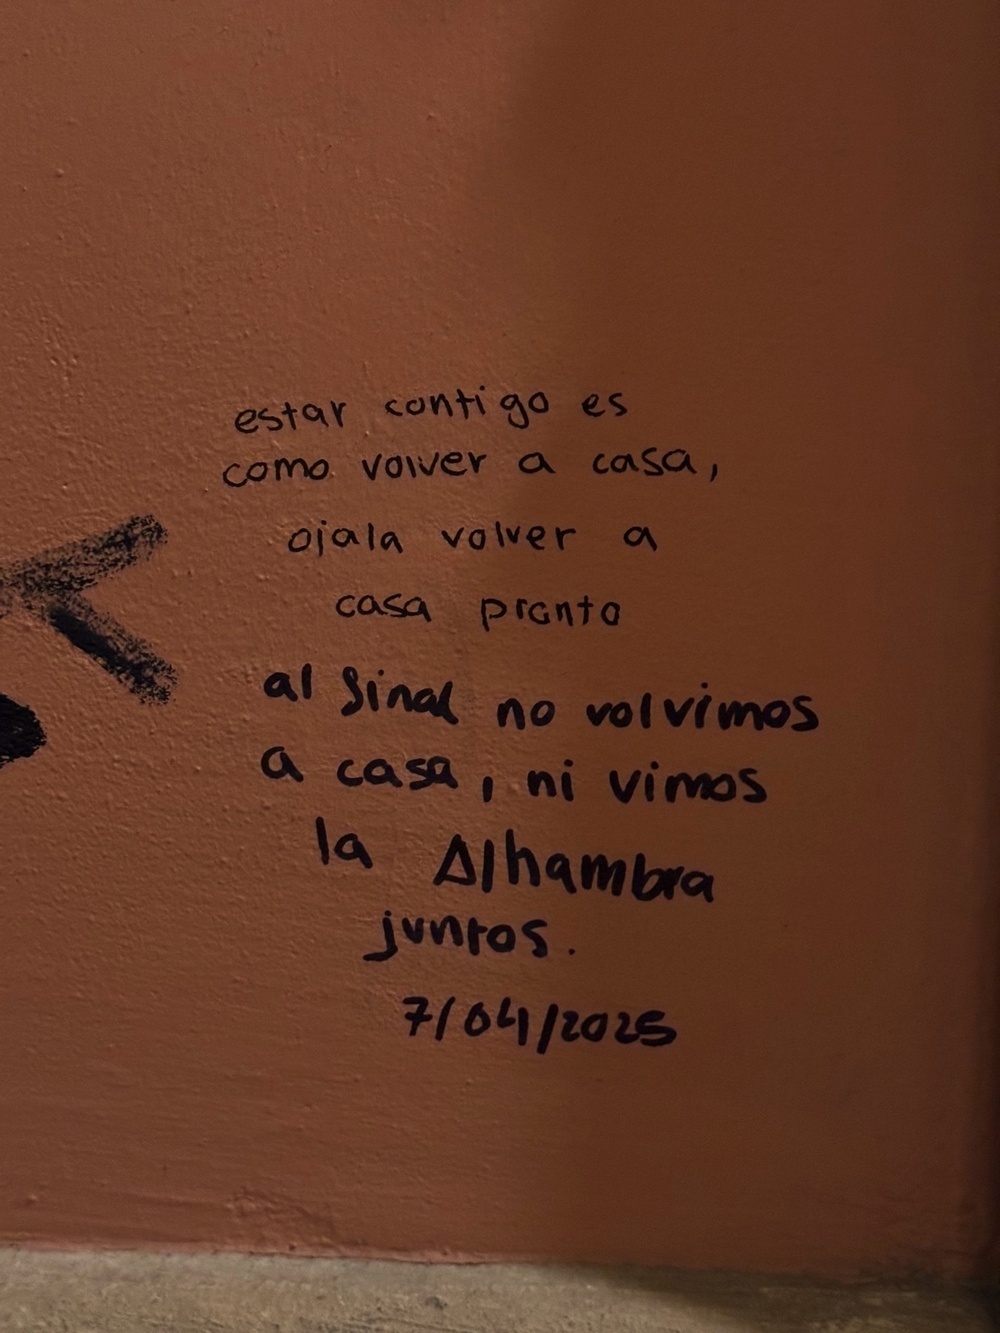 estar contigo es
como volver a casa,
ojala volver a
casa pronto
al final no volvimos
a casa, ni vimos
la Alhambra
juntos.
7/04/2025